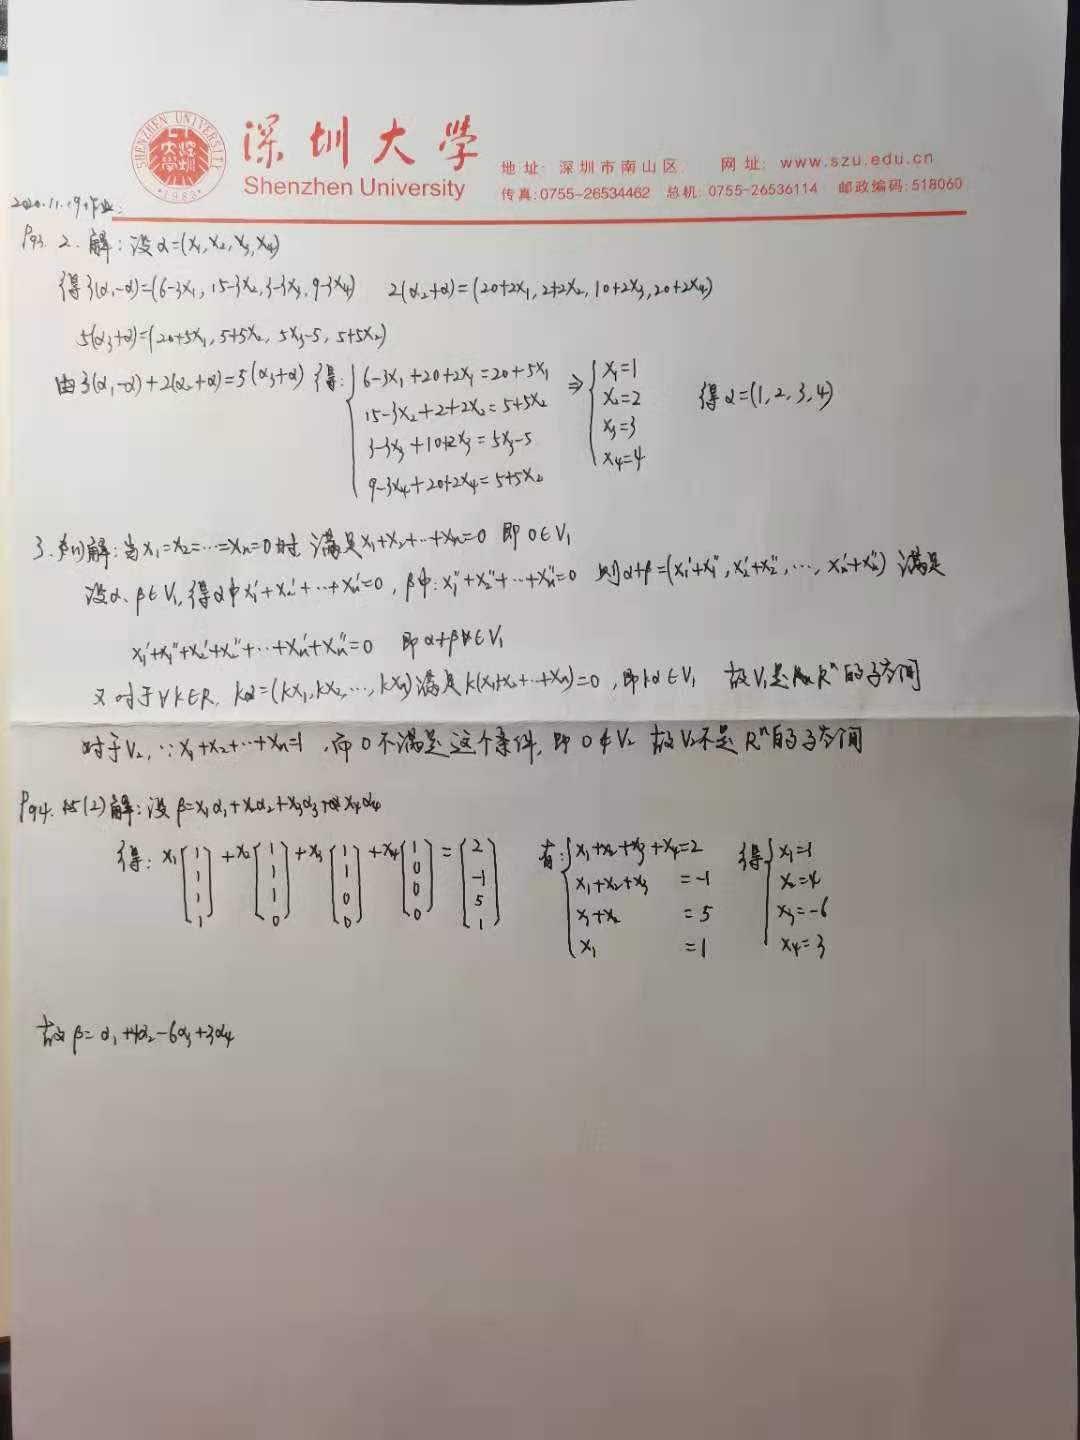 SHENZHEN UNIVERSITY
1983
深圳大学
Shenzhen University
地址: 深圳市南山区 网址: www.szu.edu.cn
传真:0755-26534462 总机:0755-26536114 邮政编码:518060
2020.11.19.作业.
P93. 2. 解: 设α=(x₁,x₂,x₃,x₄)
得3(α₁-α)=(6-3x₁, 15-3x₂, 3-3x₃, 9-3x₄) 2(α₂+α)=(20+2x₁, 2+2x₂, 10+2x₃, 20+2x₄)
5(α₃+α)=(20+5x₁, 5+5x₂, 5x₃-5, 5+5x₂)
由3(α₁-α)+2(α₂+α)=5(α₃+α) 得: 6-3x₁+20+2x₁=20+5x₁ ⇒ x₁=1
15-3x₂+2+2x₂=5+5x₂ x₂=2 得α=(1,2,3,4)
3-3x₃+10+2x₃=5x₃-5 x₃=3
9-3x₄+20+2x₄=5+5x₂ x₄=4
3. (1)解: 当x₁=x₂=…=xₙ=0时 满足x₁+x₂+…+xₙ=0 即0∈V₁
设α、β∈V₁, 得α中x₁'+x₂'+…+xₙ'=0, β中: x₁''+x₂''+…+xₙ''=0 则α+β=(x₁'+x₁'', x₂'+x₂'', …, xₙ'+xₙ'') 满足
x₁'+x₁''+x₂'+x₂''+…+xₙ'+xₙ''=0 即α+β∈V₁
又对于∀k∈R, kα=(kx₁,kx₂,…,kxₙ)满足k(x₁+x₂+…+xₙ)=0, 即kα∈V₁ 故V₁是Rⁿ的子空间
对于V₂, ∵x₁+x₂+…+xₙ=1, 而0不满足这个条件, 即0∉V₂ 故V₂不是Rⁿ的子空间
P94. 5(2)解: 设β=x₁α₁+x₂α₂+x₃α₃+x₄α₄
得: x₁[1 1 1 1]+x₂[1 1 1 0]+x₃[1 1 0 0]+x₄[1 0 0 0]=[2 -1 5 1] 有: x₁+x₂+x₃+x₄=2 得 x₁=1
x₁+x₂+x₃=-1 x₂=4
x₁+x₂=5 x₃=-6
x₁=1 x₄=3
故β=α₁+4α₂-6α₃+3α₄